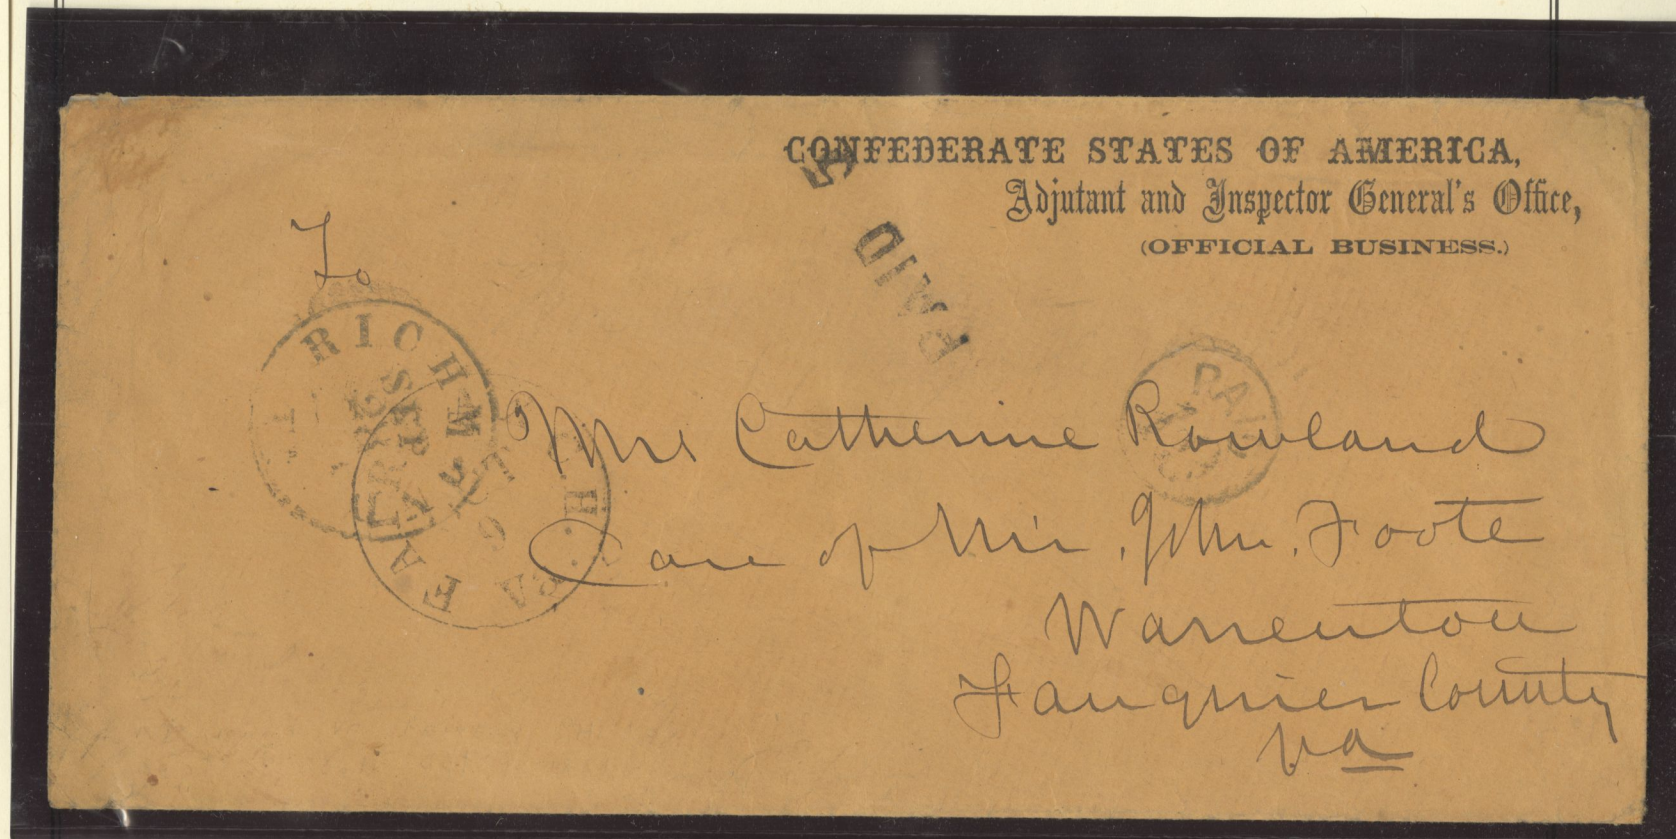 CONFEDERATE STATES OF AMERICA,
Adjutant and Inspector General's Office,
(OFFICIAL BUSINESS.)
5
PAID
To
RICHM
PAI
FA
C.H.
VA
6
Mrs Catherine Rowland
Care of Mr. John. Foote
Warrenton
Fauquier County
Va